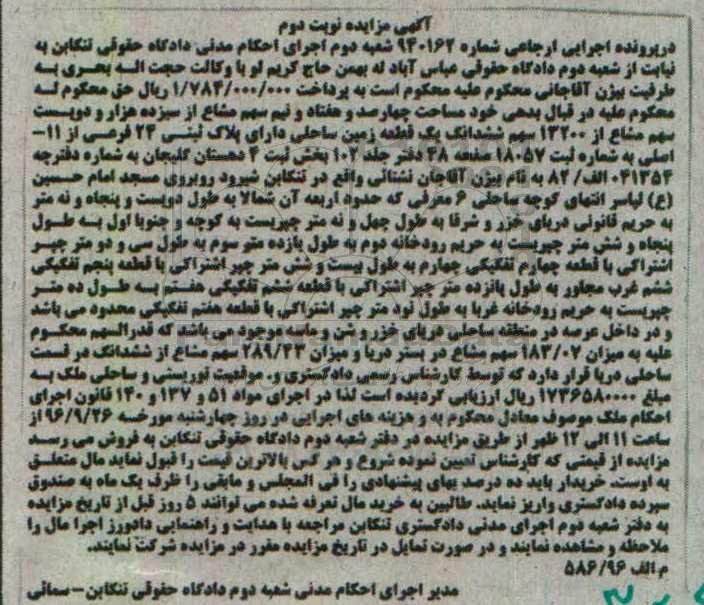 آگهی مزایده نوبت دوم
درپرونده اجرایی ارجاعی شماره ۹۴۰۱۶۲ شعبه دوم اجرای احکام مدنی دادگاه حقوقی تنکابن به
نیابت از شعبه دوم دادگاه حقوقی عباس آباد له بهمن حاج کریم لو با وکالت حجت اله بحری به
طرفیت بیژن آقاجانی محکوم علیه محکوم است به پرداخت ۱/۷۸۴/۰۰۰/۰۰۰ ریال حق محکوم له
محکوم علیه در قبال بدهی خود مساحت چهارصد و هفتاد و نیم سهم مشاع از سیزده هزار و دویست
سهم مشاع از ۱۳۲۰۰ سهم ششدانگ یک قطعه زمین ساحلی دارای پلاک ثبتی ۲۴ فرعی از ۱۱-
اصلی به شماره ثبت ۱۸۰۵۷ صفحه ۴۸ دفتر جلد ۱۰۲ بخش ثبت ۴ دهستان گلیجان به شماره دفترچه
۰۴۱۳۵۴ الف/ ۸۲ به نام بیژن آقاجان نشتائی واقع در تنکابن شیرود روبروی مسجد امام حسین
(ع) لپاسر انتهای کوچه ساحلی ۶ معرفی که حدود اربعه آن شمالا به طول دویست و پنجاه و نه متر
به حریم قانونی دریای خزر و شرقا به طول چهل و نه متر چپریست به کوچه و جنوبا اول به طول
پنجاه و شش متر چپریست به حریم رودخانه دوم به طول یازده متر سوم به طول سی و دو متر چپر
اشتراکی با قطعه چهارم تفکیکی چهارم به طول بیست و شش متر چپر اشتراکی با قطعه پنجم تفکیکی
ششم غرب مجاور به طول پانزده متر چپر اشتراکی با قطعه ششم تفکیکی هفتم به طول ده متر
چپریست به حریم رودخانه غربا به طول نود متر چپر اشتراکی با قطعه هفتم تفکیکی محدود می باشد
و در داخل عرصه در منطقه ساحلی دریای خزر و شن و ماسه موجود می باشد که قدرالسهم محکوم
علیه به میزان ۱۸۳/۰۷ سهم مشاع در بستر دریا و میزان ۲۸۹/۴۳ سهم مشاع از ششدانگ در قسمت
ساحلی دریا قرار دارد که توسط کارشناس رسمی دادگستری و. موقعیت توریستی و ساحلی ملک به
مبلغ ۱۷۳۶۵۸۰۰۰۰ ریال ارزیابی گردیده است لذا در اجرای مواد ۵۱ و ۱۳۷ و ۱۴۰ قانون اجرای
احکام ملک موصوف معادل محکوم به و هزینه های اجرایی در روز چهارشنبه مورخسه ۹۶/۹/۲۶ از
ساعت ۱۱ الی ۱۲ ظهر از طریق مزایده در دفتر شعبه دوم دادگاه حقوقی تنکابن به فروش می رسد
مزایده از قیمتی که کارشناس تعیین نموده شروع و هر کس بالاترین قیمت را قبول نماید مال متعلق
به اوست. خریدار باید ده درصد بهای پیشنهادی را فی المجلس و مابقی را ظرف یک ماه به صندوق
سپرده دادگستری واریز نماید. طالبین به خرید مال تعرفه شده می توانند ۵ روز قبل از تاریخ مزایده
به دفتر شعبه دوم اجرای مدنی دادگستری تنکابن مراجعه با هدایت و راهنمایی دادورز اجرا مال را
ملاحظه و مشاهده نمایند و در صورت تمایل در تاریخ مزایده مقرر در مزایده شرکت نمایند.
م الف ۵۸۶/۹۶
مدیر اجرای احکام مدنی شعبه دوم دادگاه حقوقی تنکابن-سمائی